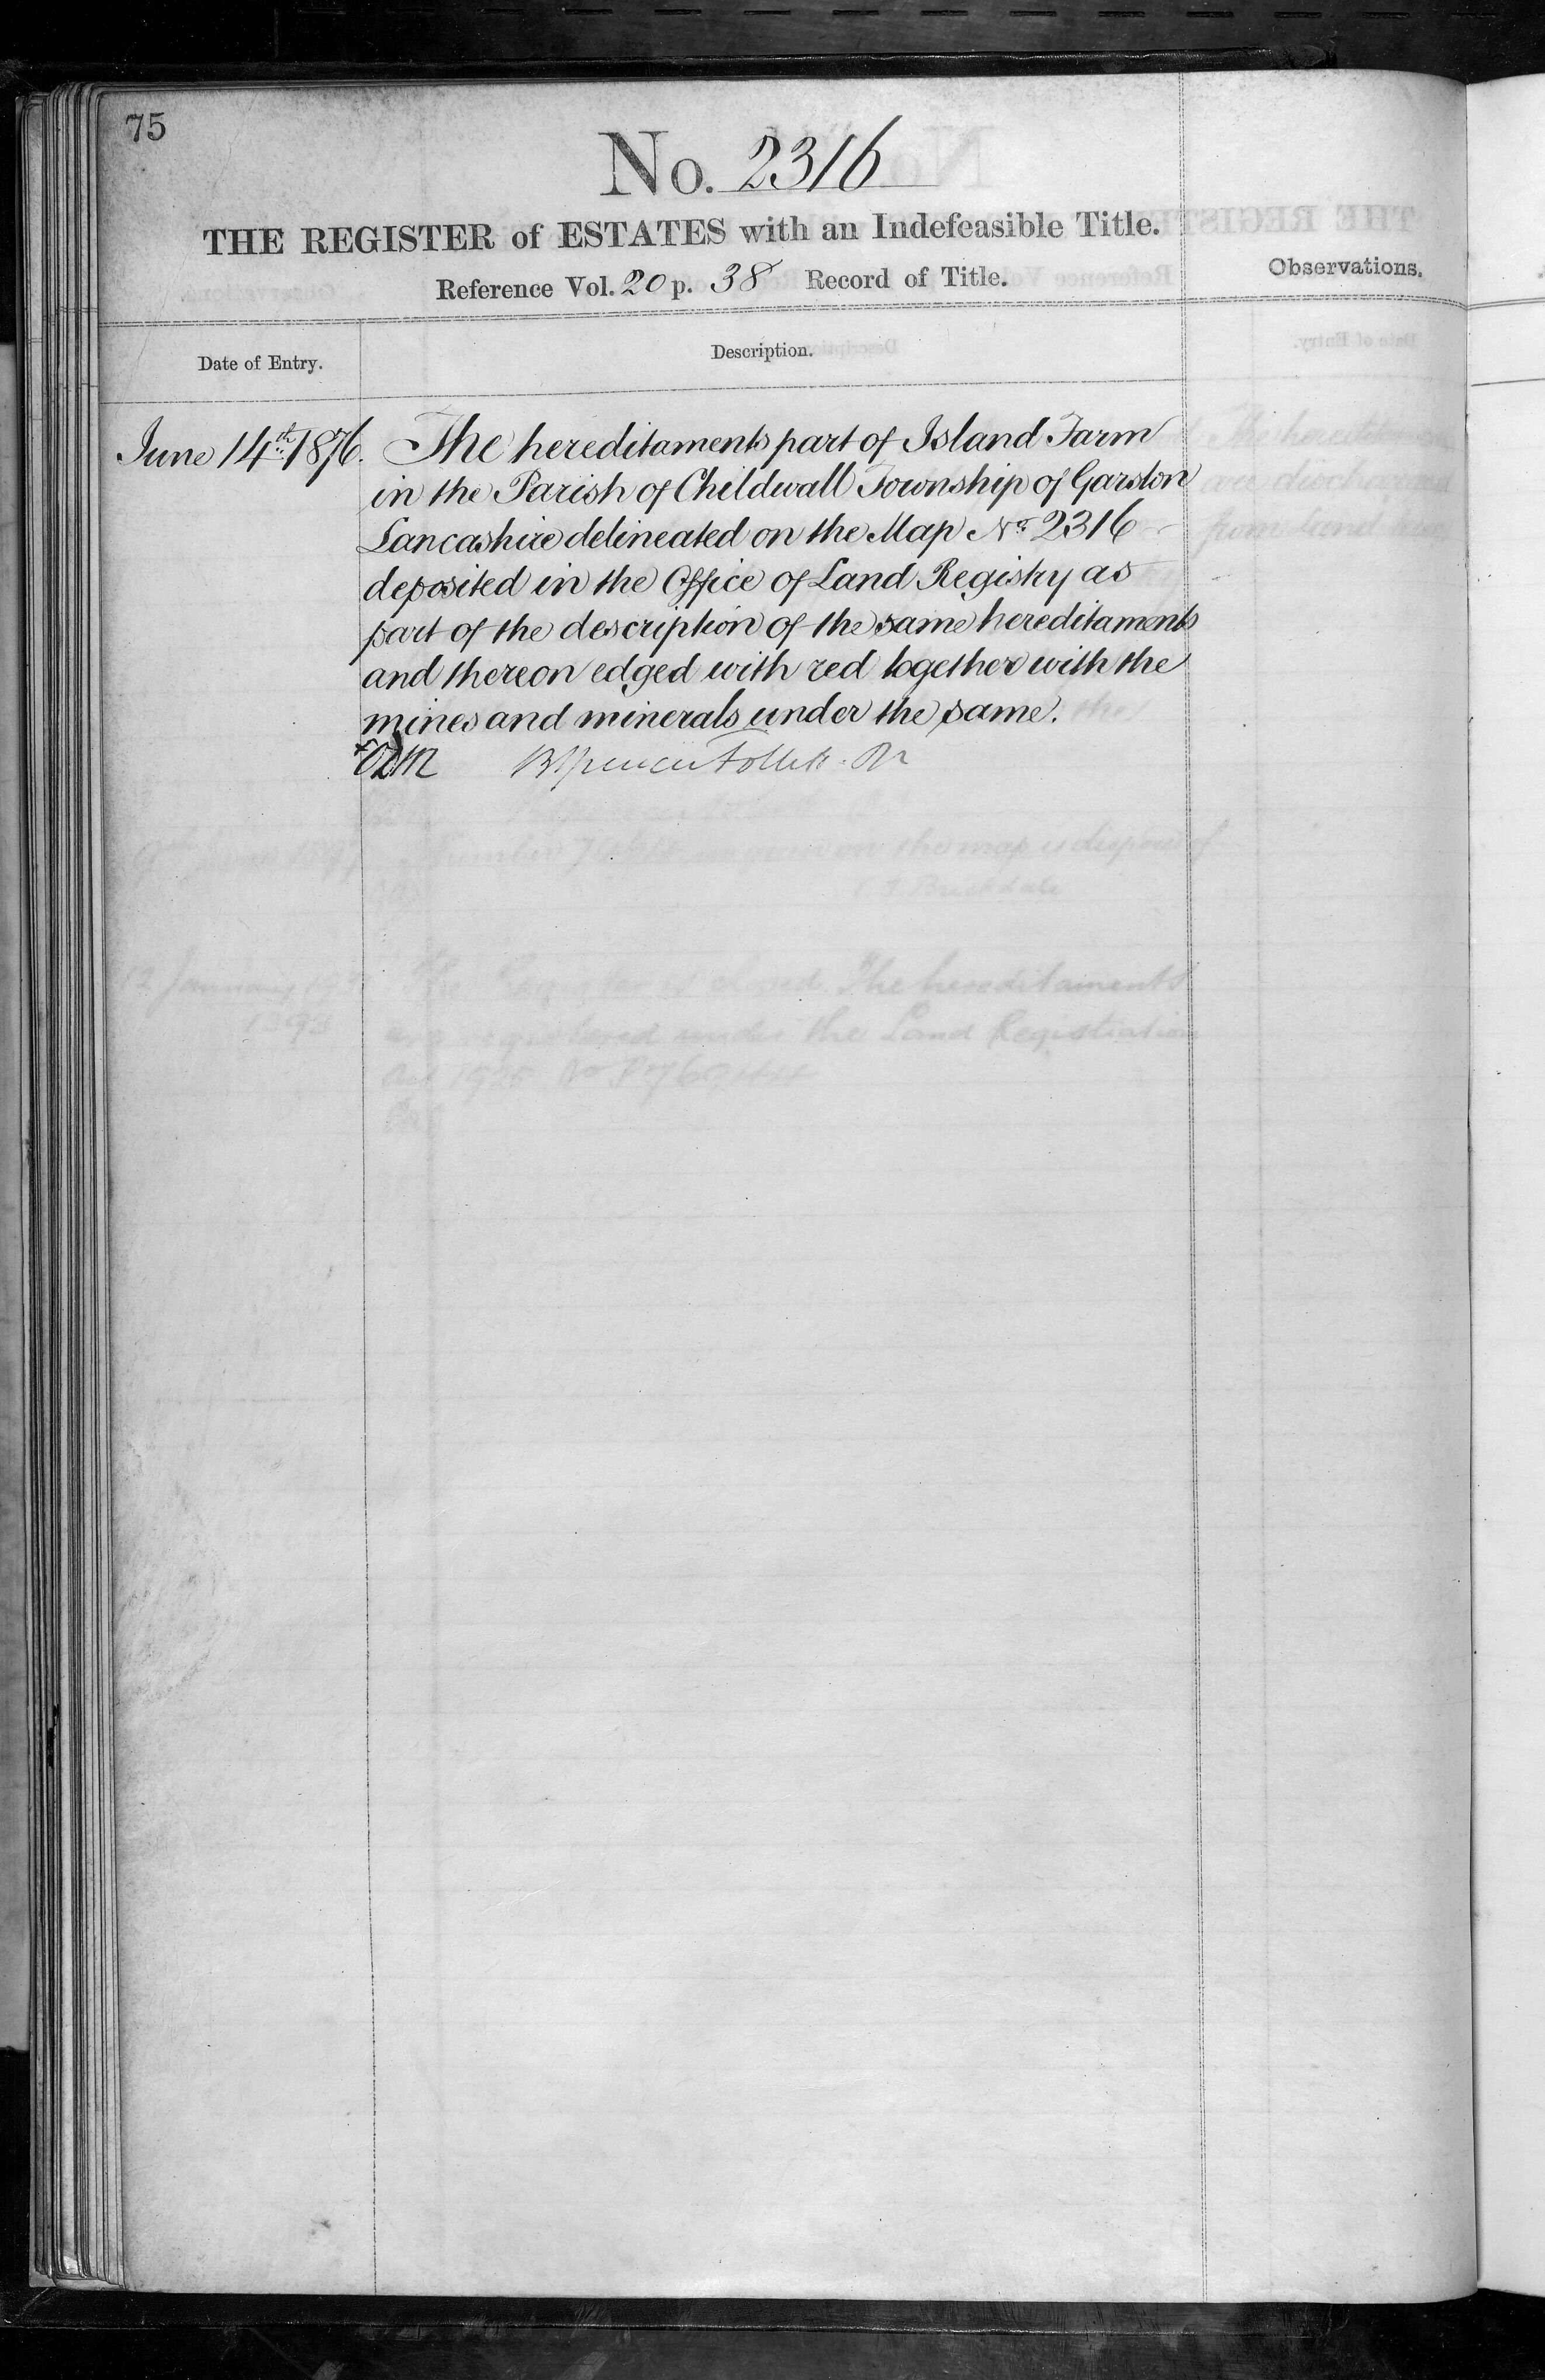 75
No. 2316
THE REGISTER of ESTATES with an Indefeasible Title.
Reference Vol. 20 p. 38 Record of Title.
Observations.
Date of Entry.
Description.
June 14th 1876. The hereditaments part of Island Farm
in the Parish of Childwall Township of Garston
Lancashire delineated on the Map No. 2316
deposited in the Office of Land Registry as
part of the description of the same hereditaments
and thereon edged with red together with the
mines and minerals under the same.
BSpencer Follett